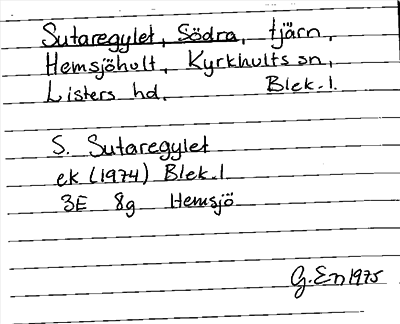 Sutaregylet, Södra, tjärn,
Hemsjöhult, Kyrkhults sn,
Listers hd, Blek.l.
S. Sutaregylet
ek (1974) Blek.l
3E 8g Hemsjö
G.En 1975